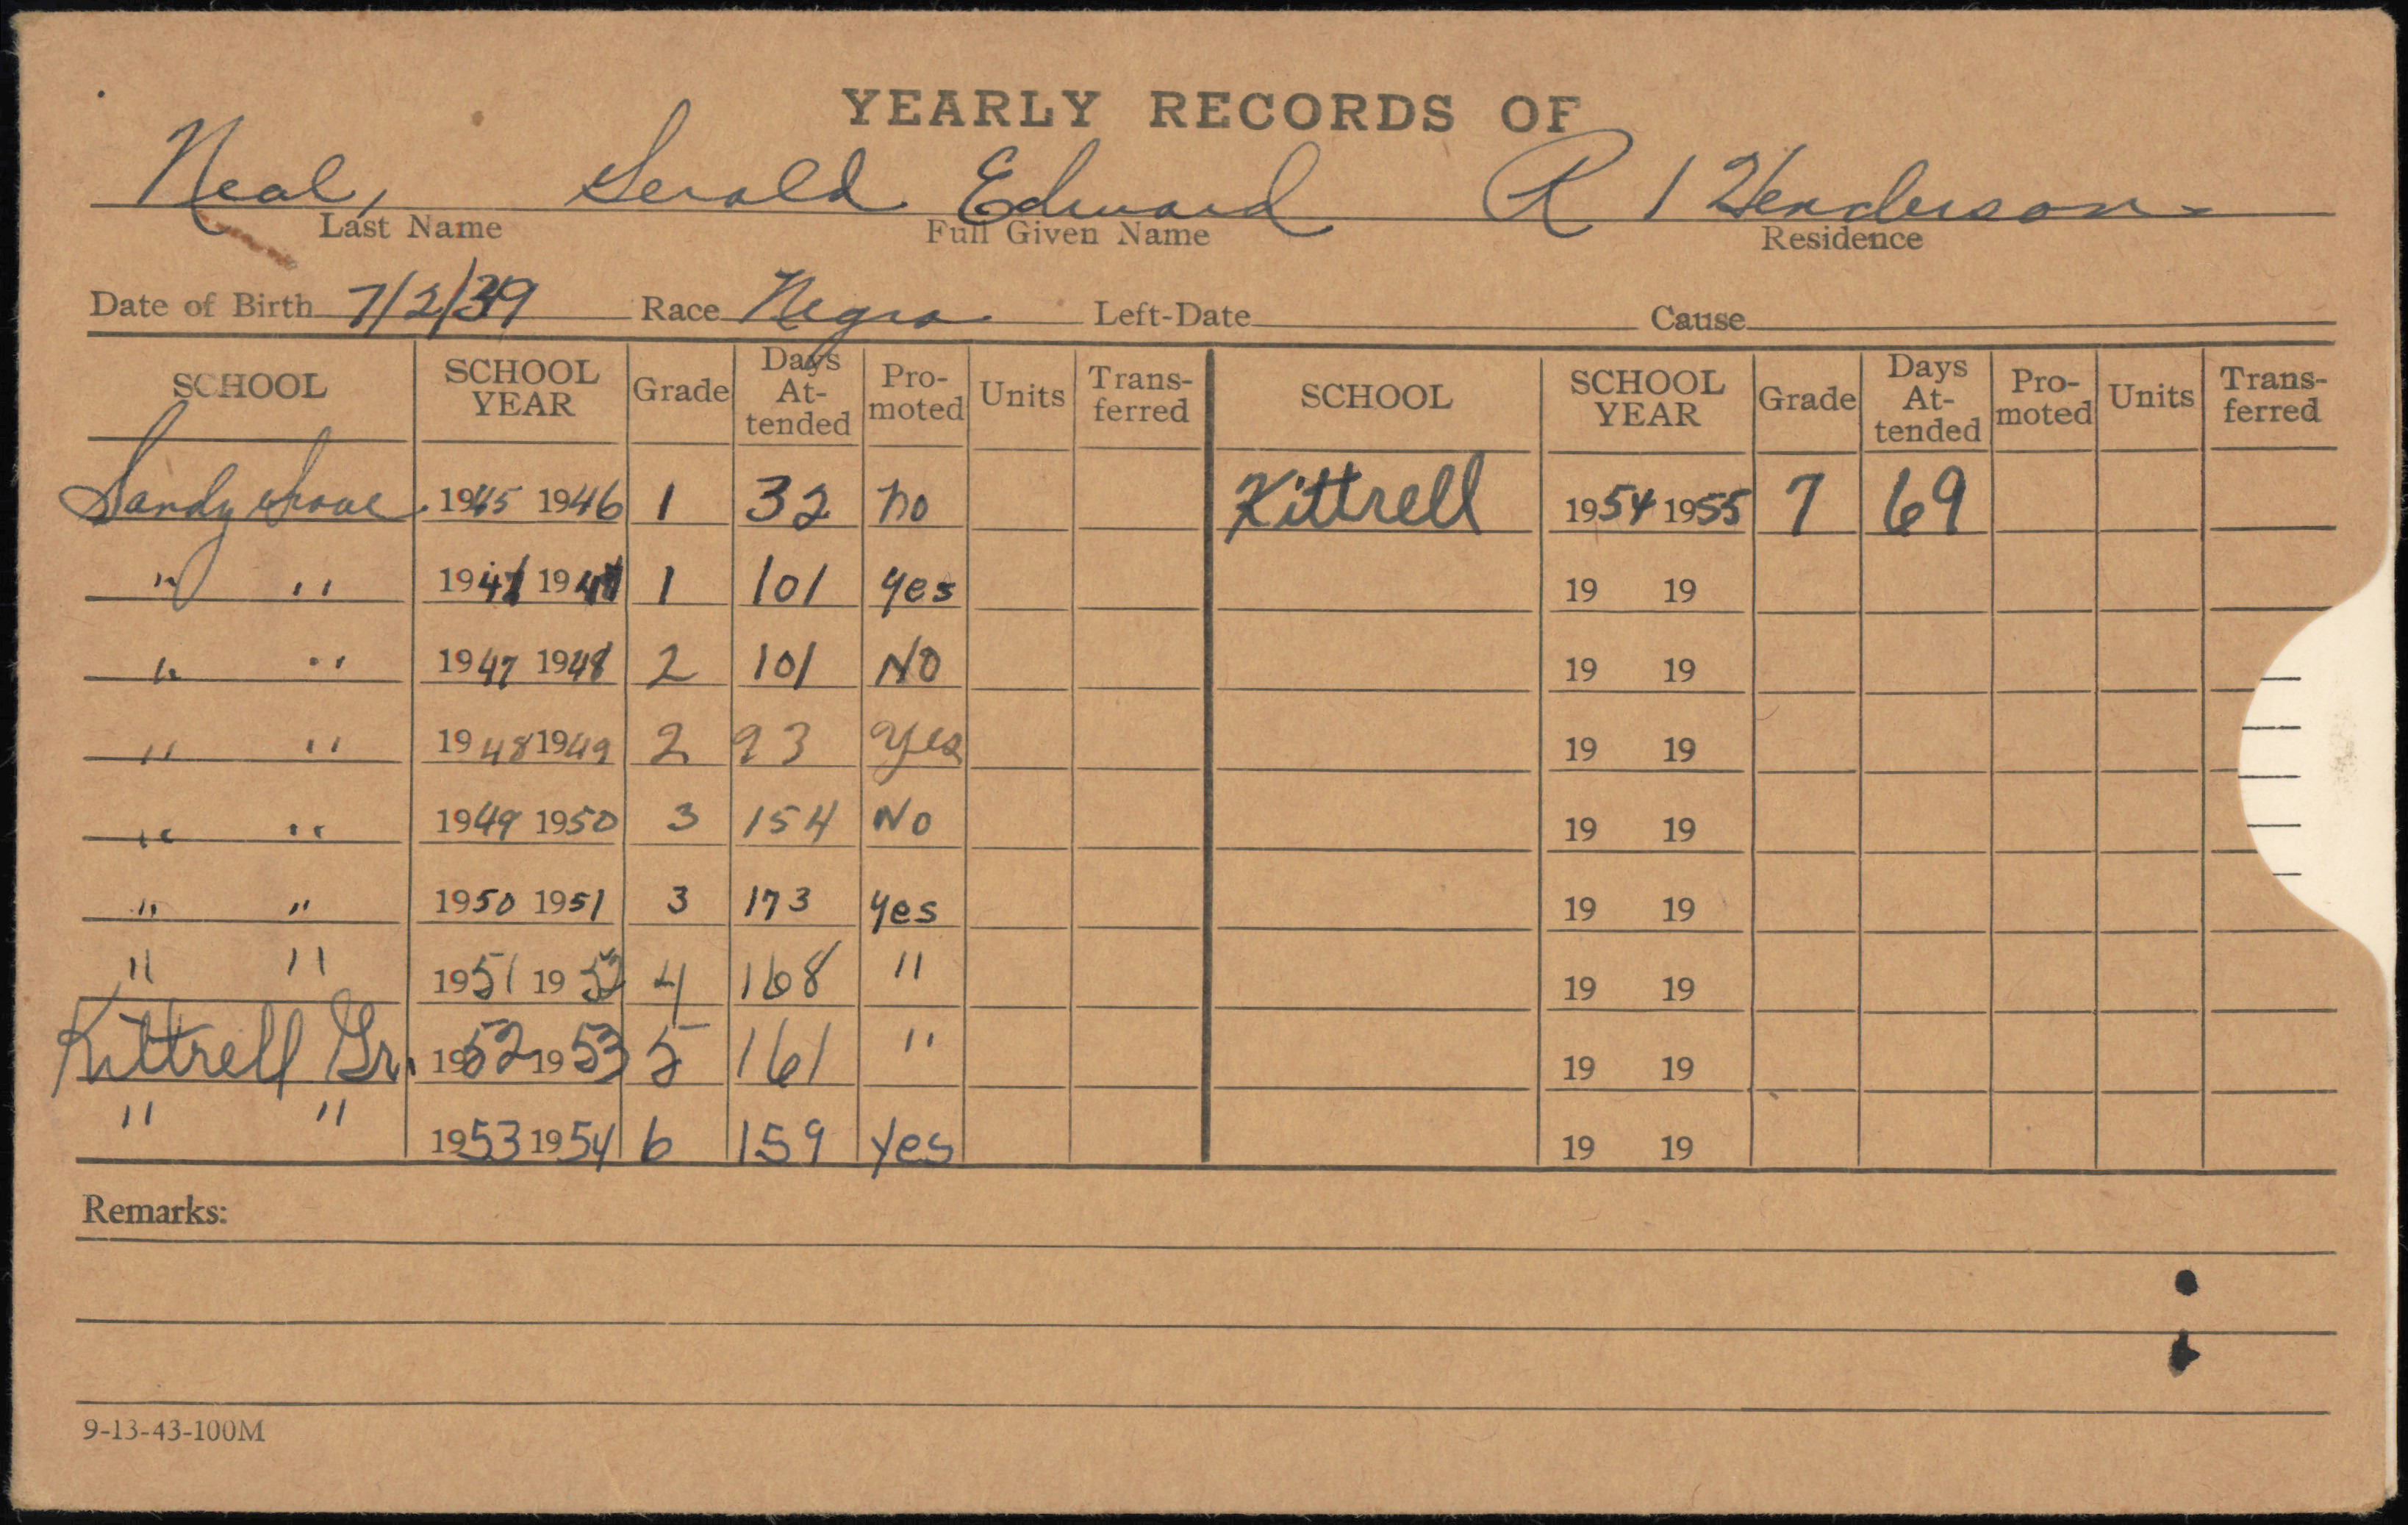 YEARLY RECORDS OF
Neal, Gerald Edward R 1 Henderson
Last Name Full Given Name Residence
Date of Birth 7/2/39 Race Negro Left-Date Cause
SCHOOL SCHOOL YEAR Grade Days At-tended Pro-moted Units Trans-ferred SCHOOL SCHOOL YEAR Grade Days At-tended Pro-moted Units Trans-ferred
Sandy Grove 1945 1946 1 32 no Kittrell 1954 1955 7 69
" " 19 1947 1 101 yes 19 19
" " 1947 1948 2 101 No 19 19
" " 1948 1949 2 93 yes 19 19
" " 1949 1950 3 154 No 19 19
" " 1950 1951 3 173 yes 19 19
" " 1951 1952 4 168 " 19 19
Kittrell Gr. 1952 1953 5 161 " 19 19
" " 1953 1954 6 159 yes 19 19
Remarks:
9-13-43-100M